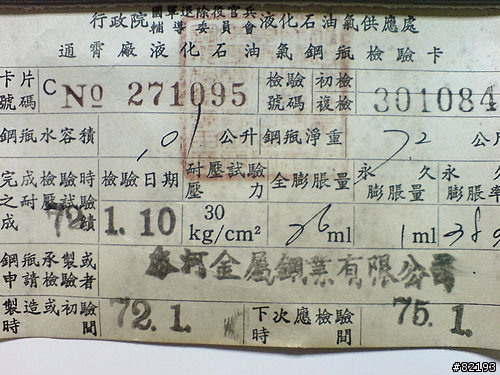 行政院國軍退除役官兵輔導委員會液化石油氣供應處
通霄廠液化石油氣鋼瓶檢驗卡
卡片號碼 C No 271095 檢驗號碼 初檢複檢 301084
鋼瓶水容積 公升 鋼瓶淨重 公斤
完成檢驗時之耐壓試驗成績 檢驗日期 耐壓試驗壓力 全膨脹量 永久膨脹量 永久膨脹率
72.1.10 30 kg/cm² 26 ml 1 ml
鋼瓶承製或申請檢驗者 金属鋼業有限公司
製造或初驗時間 72.1. 下次應檢驗時間 75.1.
#82193